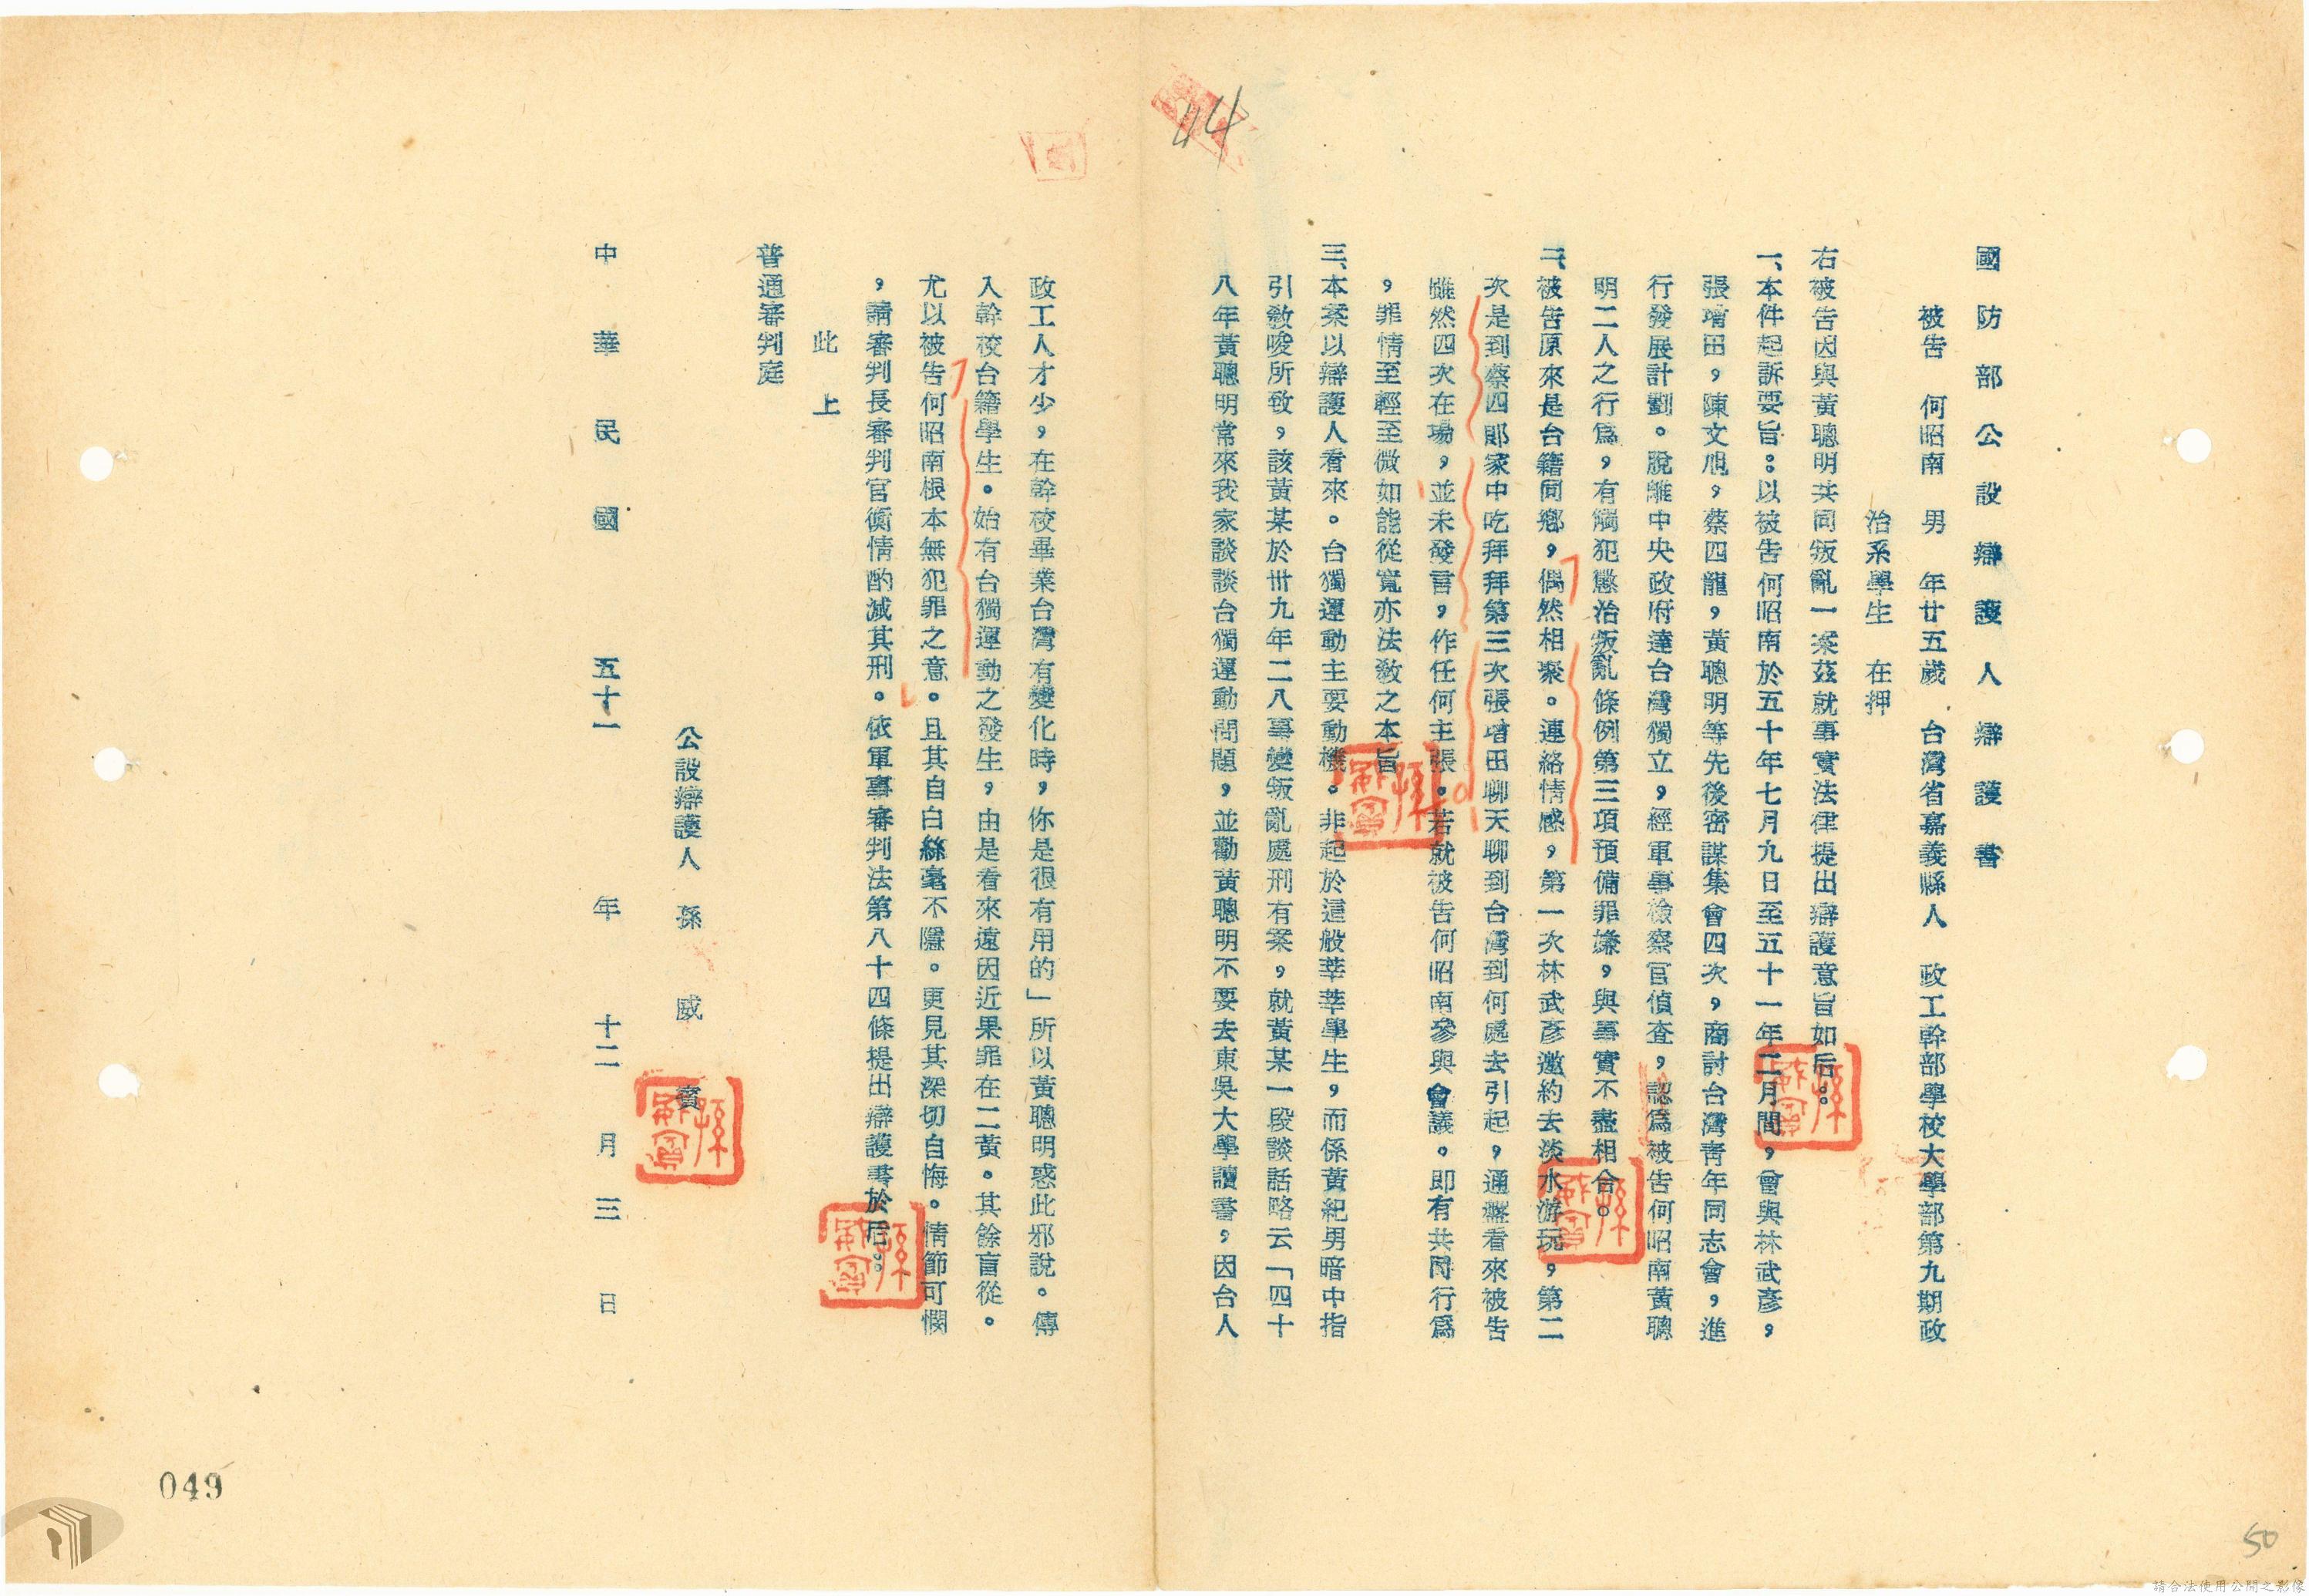 國防部公設辯護人辯護書
被告　何昭南　男　年廿五歲　台灣省嘉義縣人　政工幹部學校大學部第九期政
治系學生　在押
右被告因與黃聰明共同叛亂一案茲就事實法律提出辯護意旨如后：
一、本件起訴要旨：以被告何昭南於五十年七月九日至五十一年二月間，曾與林武彥，
張增田，陳文彪，蔡四龍，黃聰明等先後密謀集會四次，商討台灣青年同志會，進
行發展計劃。脫離中央政府達台灣獨立，經軍事檢察官偵查，認為被告何昭南黃聰
明二人之行為，有觸犯懲治叛亂條例第三項預備罪嫌，與事實不盡相合。
二、被告原來是台籍同鄉，偶然相聚。連絡情感，第一次林武彥邀約去淡水游玩，第二
次是到蔡四郎家中吃拜拜第三次張增田聊天聊到台灣到何處去引起，通盤看來被告
雖然四次在場，並未發言，作任何主張。若就被告何昭南參與會議。即有共同行為
，罪情至輕至微如能從寬亦法敎之本旨
三、本案以辯護人看來。台獨運動主要動機。非起於這般莘莘學生，而係黃紀男暗中指
引敎唆所致，該黃某於卅九年二八事變叛亂處刑有案，就黃某一段談話略云「四十
八年黃聰明常來我家談談台獨運動問題，並勸黃聰明不要去東吳大學讀書，因台人
政工人才少，在幹校畢業台灣有變化時，你是很有用的」所以黃聰明惑此邪說。傳
入幹校台籍學生。始有台獨運動之發生，由是看來遠因近果罪在二黃。其餘盲從。
尤以被告何昭南根本無犯罪之意。且其自白絲毫不隱。更見其深切自悔。情節可憫
，請審判長審判官衡情酌減其刑。依軍事審判法第八十四條提出辯護書於后：
此上
普通審判庭
公設辯護人　孫　威　賓
中華民國　五十一　年　十二　月　三　日
44
049
50
請合法使用公開之影像